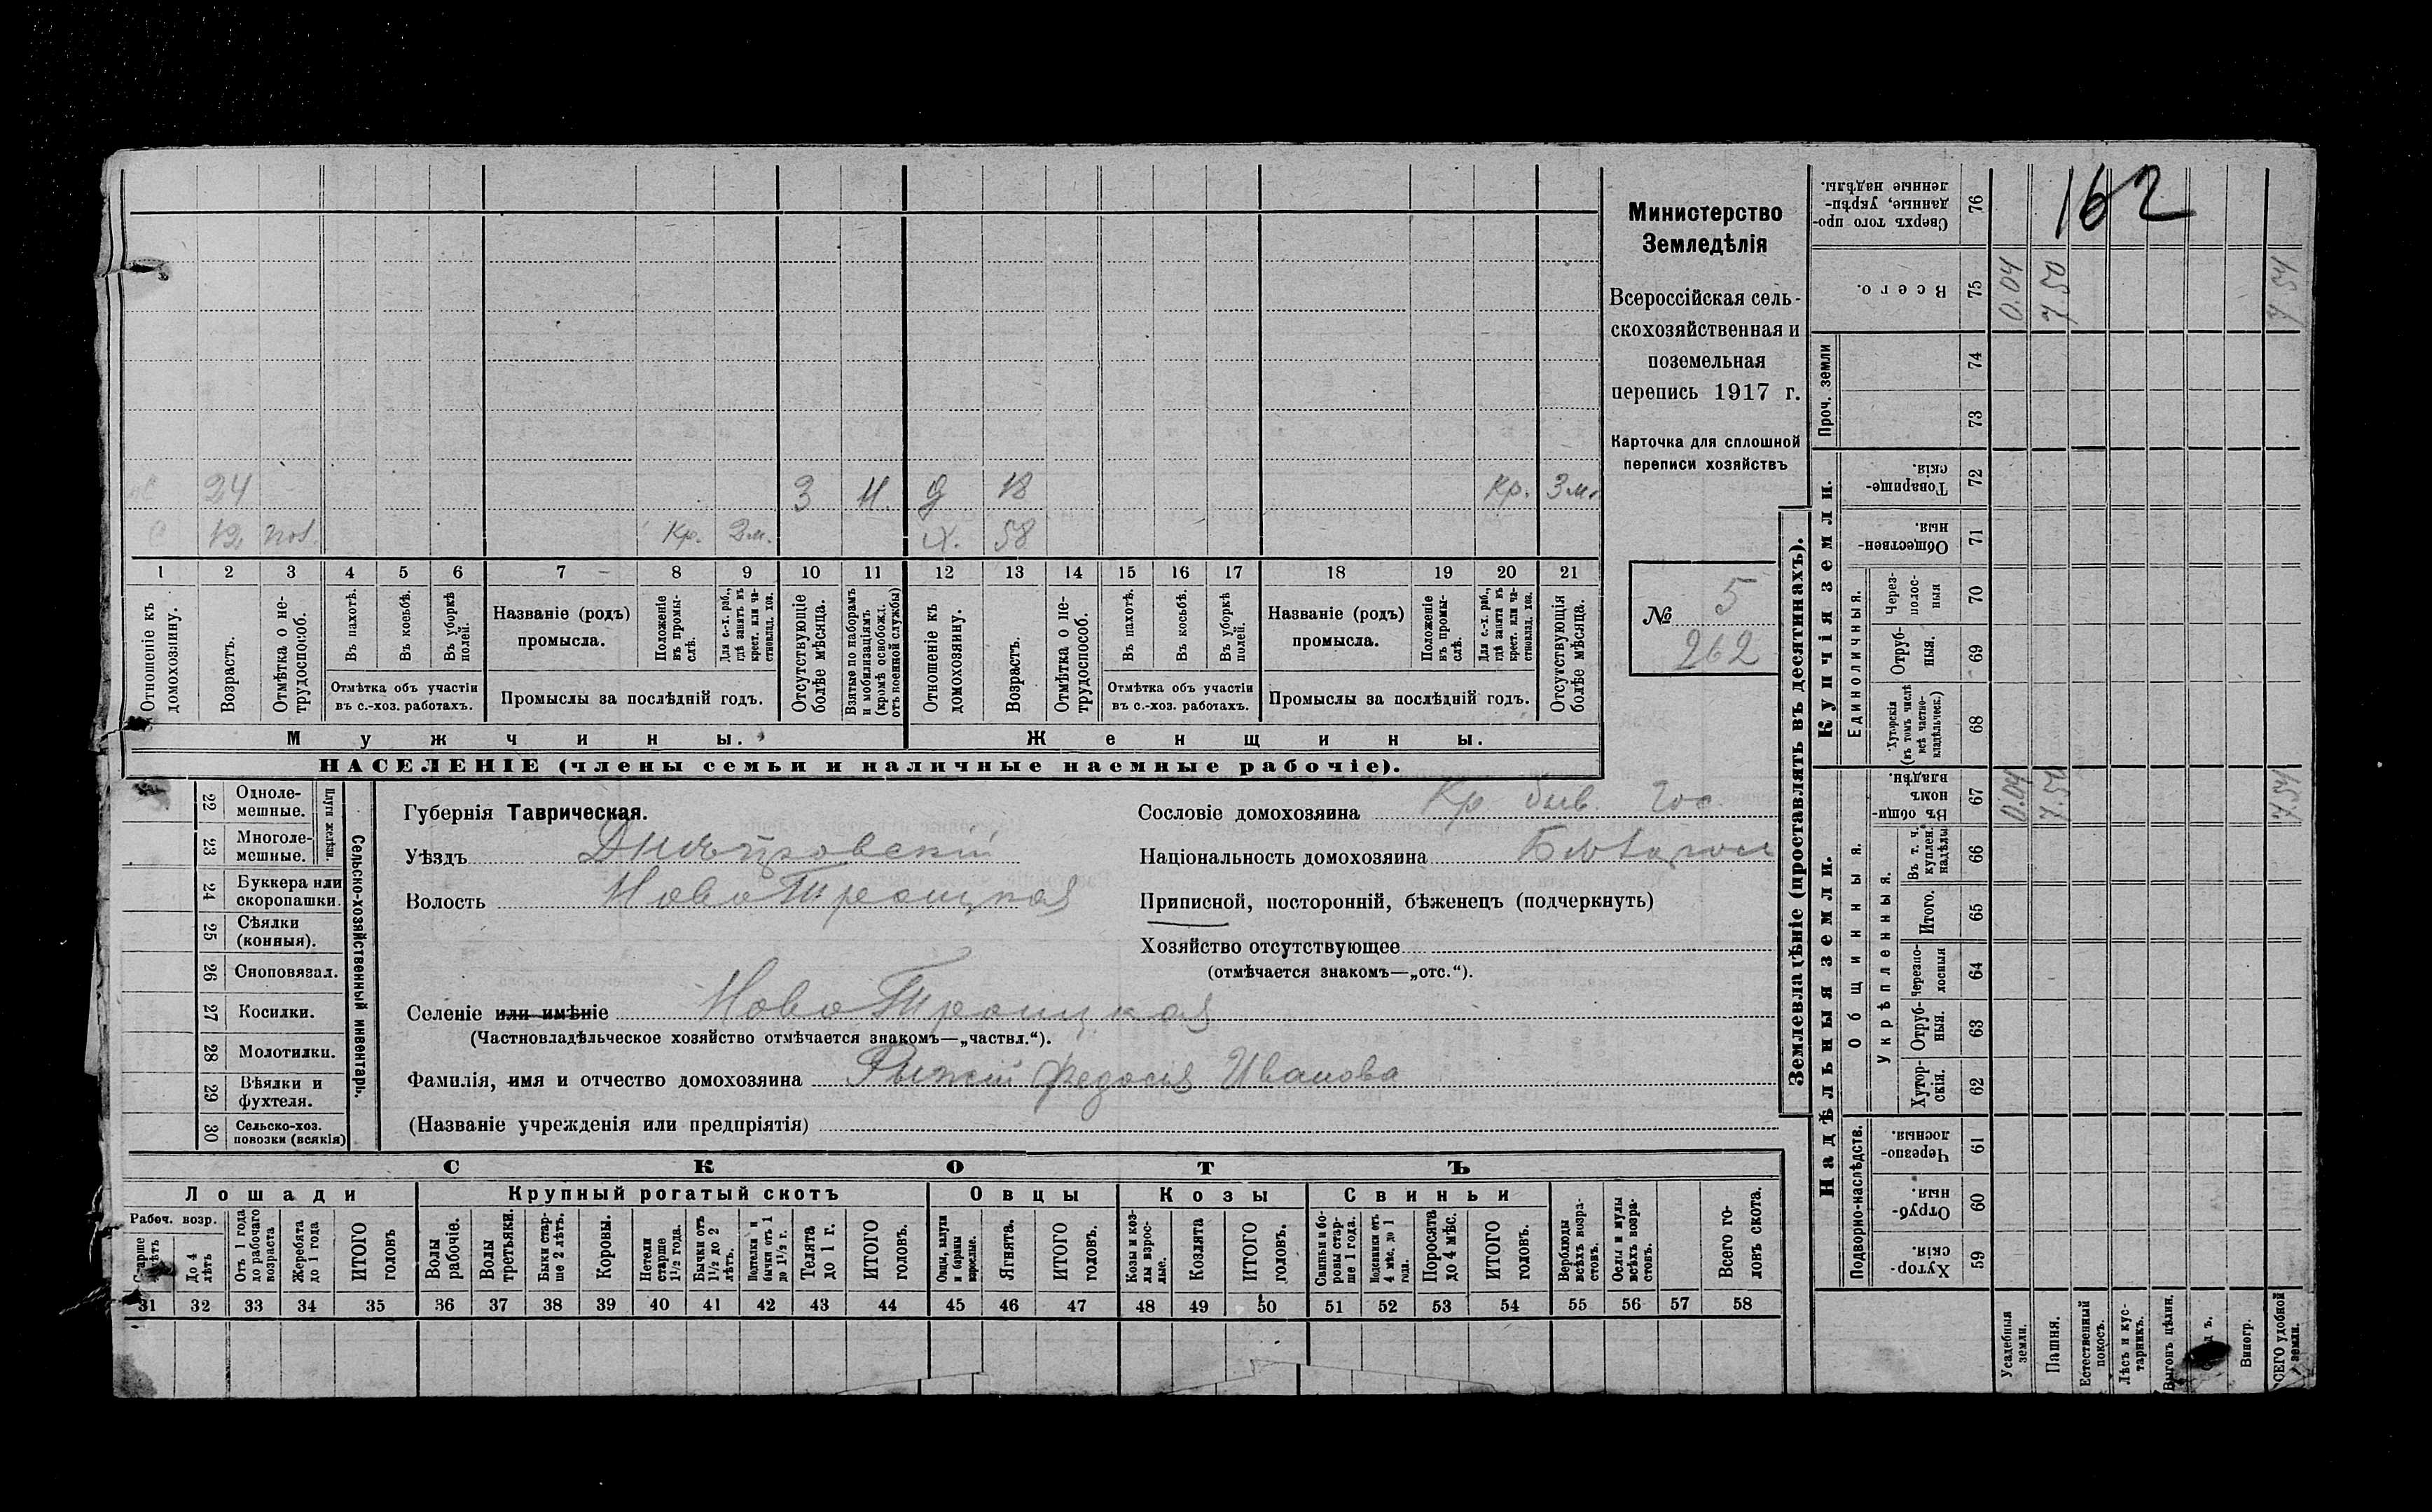 162
Министерство
Земледѣлія
Всероссійская сель-
скохозяйственная и
поземельная
перепись 1917 г.
Карточка для сплошной
переписи хозяйствъ
№ 5
262
24 3 Н. д 18 Кр. 3 м.
с 12 Кр. 2 м. Х. 58
1 2 3 4 5 6 7 8 9 10 11 12 13 14 15 16 17 18 19 20 21
Отношеніе къ домохозяину.
Возрастъ.
Отмѣтка о не-трудоспособ.
Въ пахотѣ.
Въ косьбѣ.
Въ уборкѣ полей.
Отмѣтка объ участіи
въ с.-хоз. работахъ.
Названіе (родъ)
промысла.
Положеніе въ промы-слѣ.
Для с.-х. раб., гдѣ занятъ въ крест. или ча-стновлад. хоз.
Промыслы за послѣдній годъ.
Отсутствующіе болѣе мѣсяца.
Взятые по наборамъ и мобилизаціямъ (кромѣ освобожд. отъ военной службы)
Отношеніе къ домохозяину.
Возрастъ.
Отмѣтка о не-трудоспособ.
Въ пахотѣ.
Въ косьбѣ.
Въ уборкѣ полей.
Отмѣтка объ участіи
въ с.-хоз. работахъ.
Названіе (родъ)
промысла.
Положеніе въ промы-слѣ.
Для с.-х. раб., гдѣ занята въ крест. или ча-стновлад. хоз.
Промыслы за послѣдній годъ.
Отсутствующія болѣе мѣсяца.
Мужчины. Женщины.
НАСЕЛЕНІЕ (члены семьи и наличные наемные рабочіе).
22 Одноле-мешные.
23 Многоле-мешные.
Плуги желѣзн.
24 Буккера или скоропашки.
25 Сѣялки (конныя).
26 Сноповязал.
27 Косилки.
28 Молотилки.
29 Вѣялки и фухтеля.
30 Сельско-хоз. повозки (всякія)
Сельско-хозяйственный инвентарь.
Губернія Таврическая.
Уѣздъ Днѣпровскій
Волость Ново Троицкая
Селеніе или имѣніе Ново Троицкая
(Частновладѣльческое хозяйство отмѣчается знакомъ—„частвл.“).
Фамилія, имя и отчество домохозяина Рыжій Федосія Иванова
(Названіе учрежденія или предпріятія)
Сословіе домохозяина Кр быв. гос.
Національность домохозяина
Приписной, посторонній, бѣженецъ (подчеркнуть)
Хозяйство отсутствующее
(отмѣчается знакомъ—„отс.“).
СКОТЪ
Лошади Крупный рогатый скотъ Овцы Козы Свиньи
Рабоч. возр.
Старше 4 лѣтъ
До 4 лѣтъ
Отъ 1 года до рабочаго возраста
Жеребята до 1 года
ИТОГО головъ
Волы рабочіе.
Волы третьяки.
Быки стар-ше 2 лѣтъ.
Коровы.
Нетели старше 1 1/2 года.
Бычки отъ 1 1/2 до 2 лѣтъ.
Полтелки и бычки отъ 1 до 1 1/2 г.
Телята до 1 г.
ИТОГО головъ.
Овцы, валухи и бараны взрослые.
Ягнята.
ИТОГО головъ.
Козы и коз-лы взрос-лые.
Козлята
ИТОГО головъ.
Свиньи и бо-ровы стар-ше 1 года.
Подсвинки отъ 4 мѣс. до 1 года.
Поросята до 4 мѣс.
ИТОГО головъ.
Верблюды всѣхъ возра-стовъ.
Ослы и мулы всѣхъ возра-стовъ.
Всего го-ловъ скота.
31 32 33 34 35 36 37 38 39 40 41 42 43 44 45 46 47 48 49 50 51 52 53 54 55 56 57 58
Землевладѣніе (проставлять въ десятинахъ).
Надѣльныя земли.
Купчія земли.
Проч. земли
Подворно-наслѣдств.
Общинныя.
Укрѣпленныя.
Единоличныя.
Сверхъ того про-данные, укрѣп-ленные надѣлы. 76
Всего. 75 0.04 7 50 7.54
74
73
Товарище-скія. 72
Обществен-ныя. 71
Через-полос-ныя 70
Отруб-ныя. 69
Хуторскія (въ томъ числѣ всѣ частно-владѣльческ.) 68
Въ общи-номъ владѣн. 67 0.04 7.50 7.54
Въ т. ч. куплен. надѣлы 66
Итого. 65
Черезпо-лосныя 64
Отруб-ныя. 63
Хутор-скія. 62
Черезпо-лосныя. 61
Отруб-ныя. 60
Хутор-скія. 59
Усадебныя земли.
Пашня.
Естественный покосъ.
Лѣсъ и кус-тарникъ.
Выгонъ цѣлин.
Виногр.
ВСЕГО удобной земли.